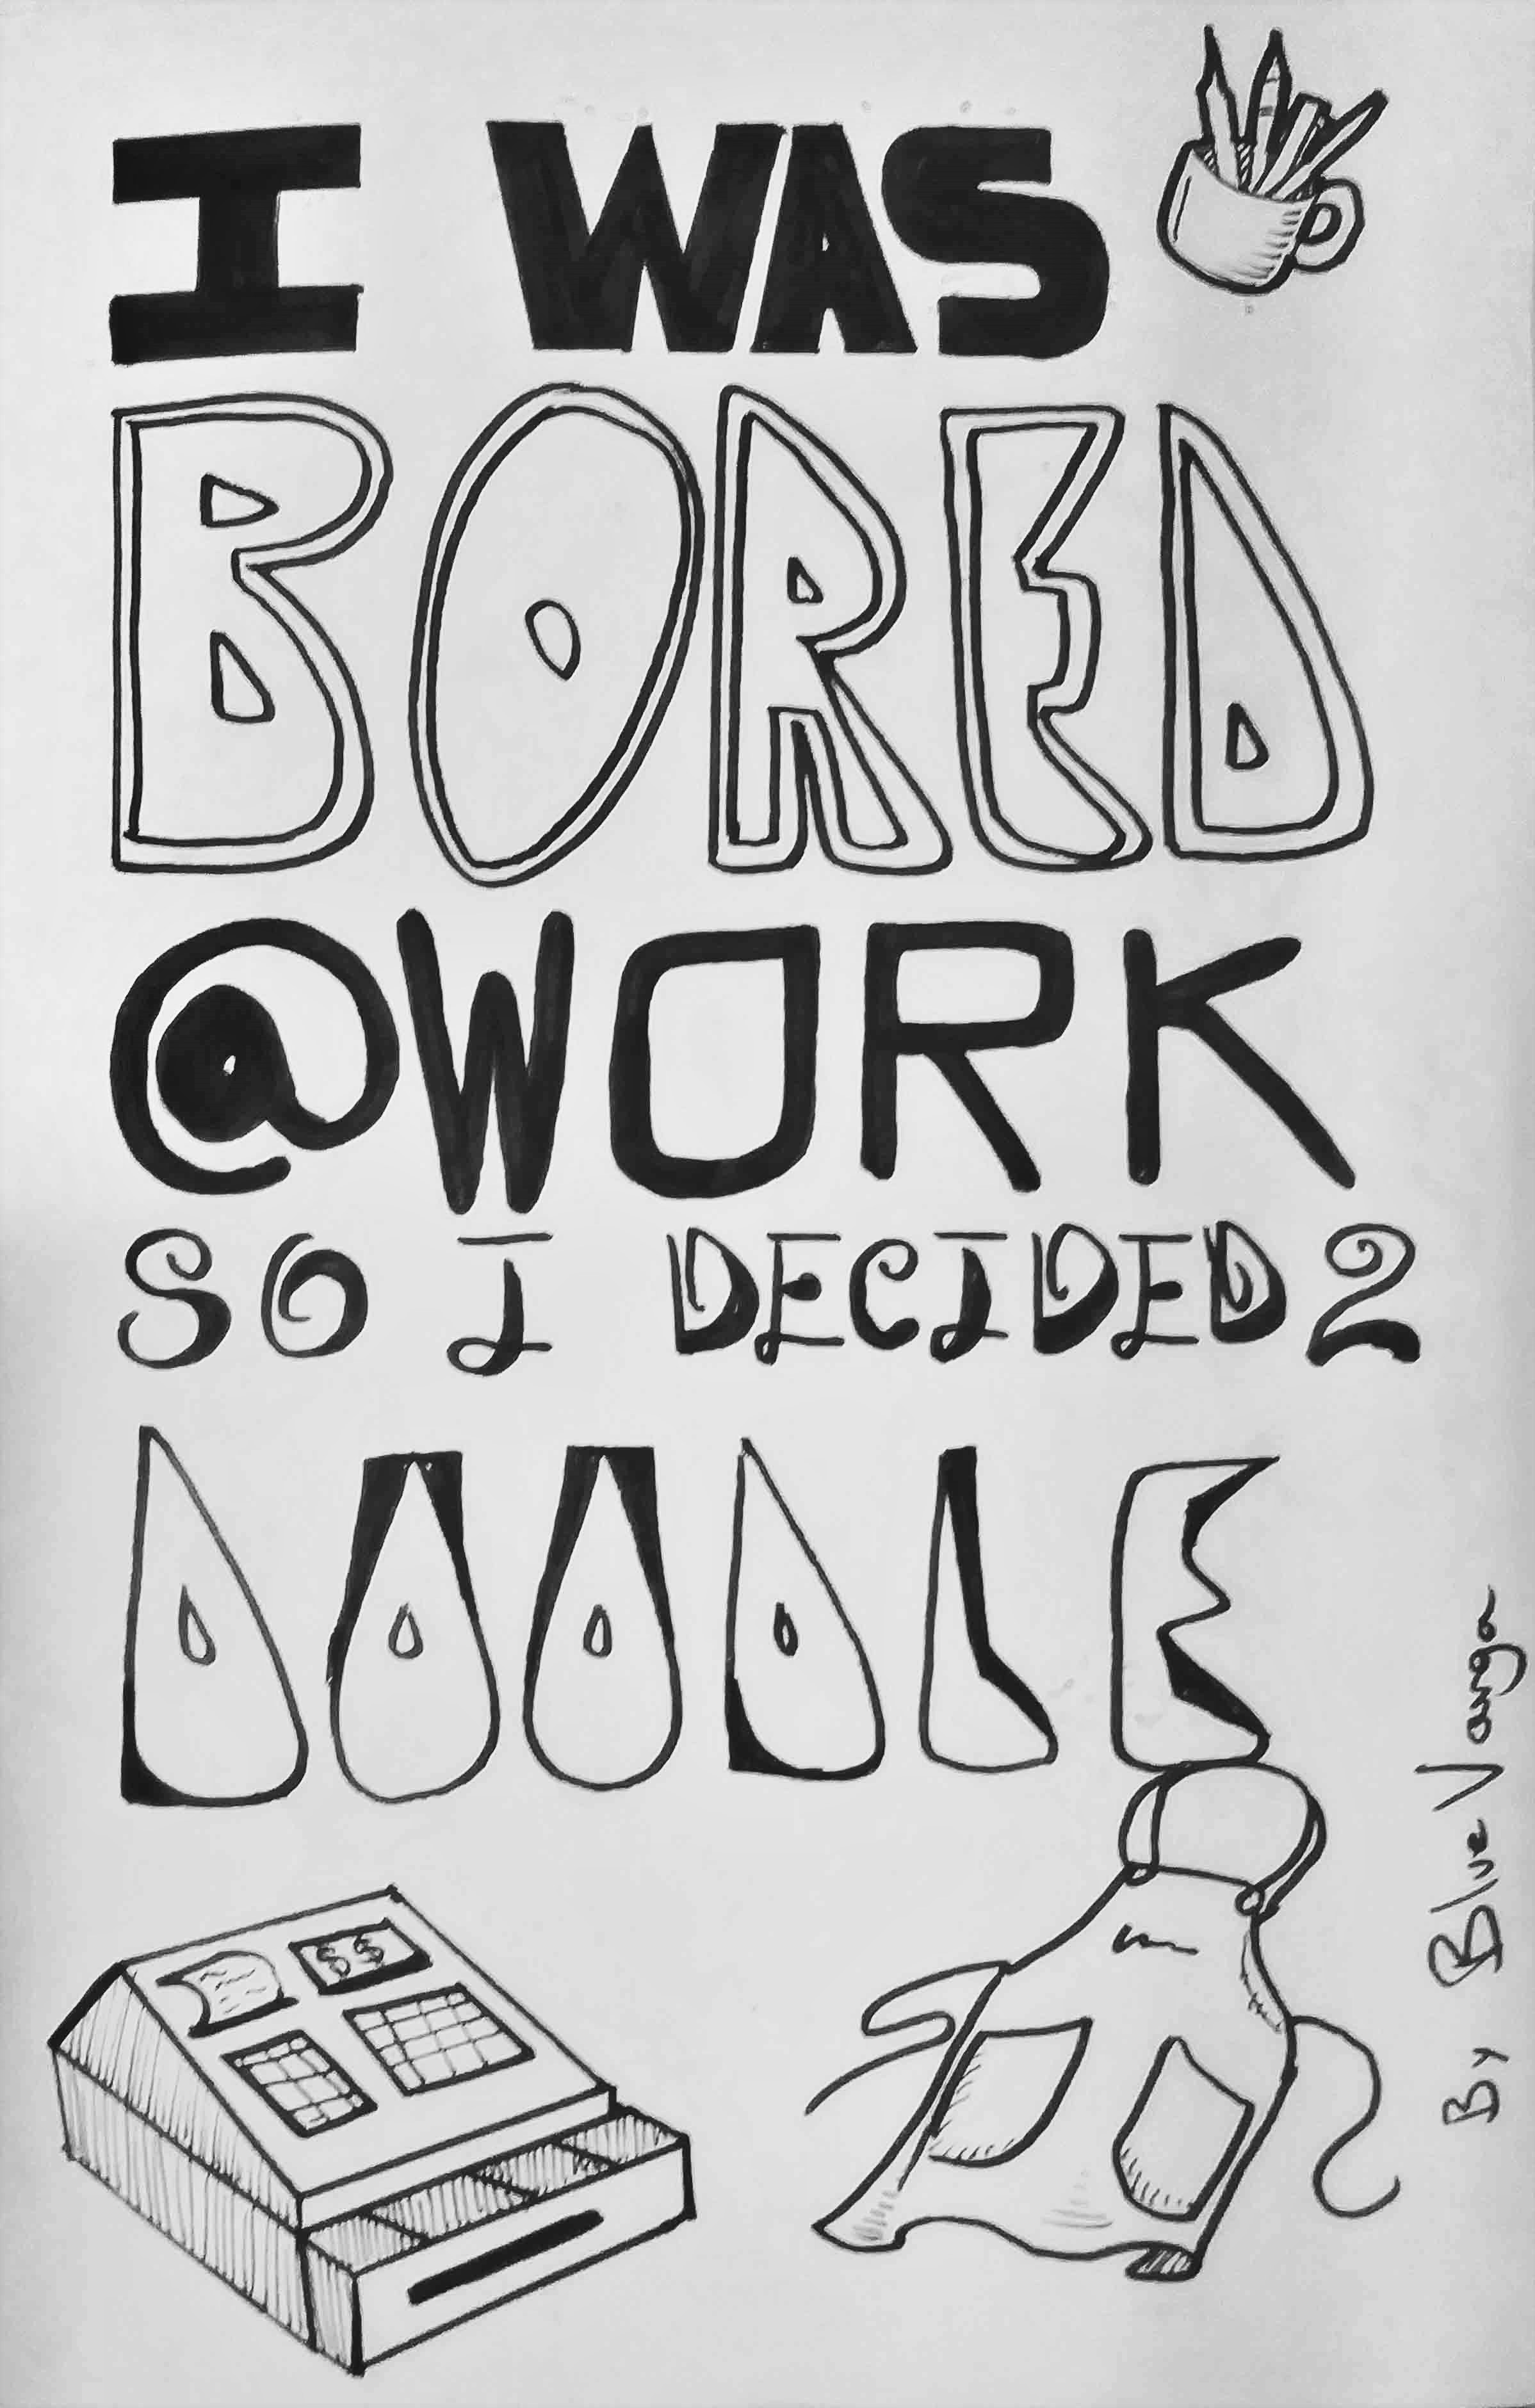 I WAS
BORED
@WORK
SO I DECIDED 2
DOODLE
$$
By Blue Varga